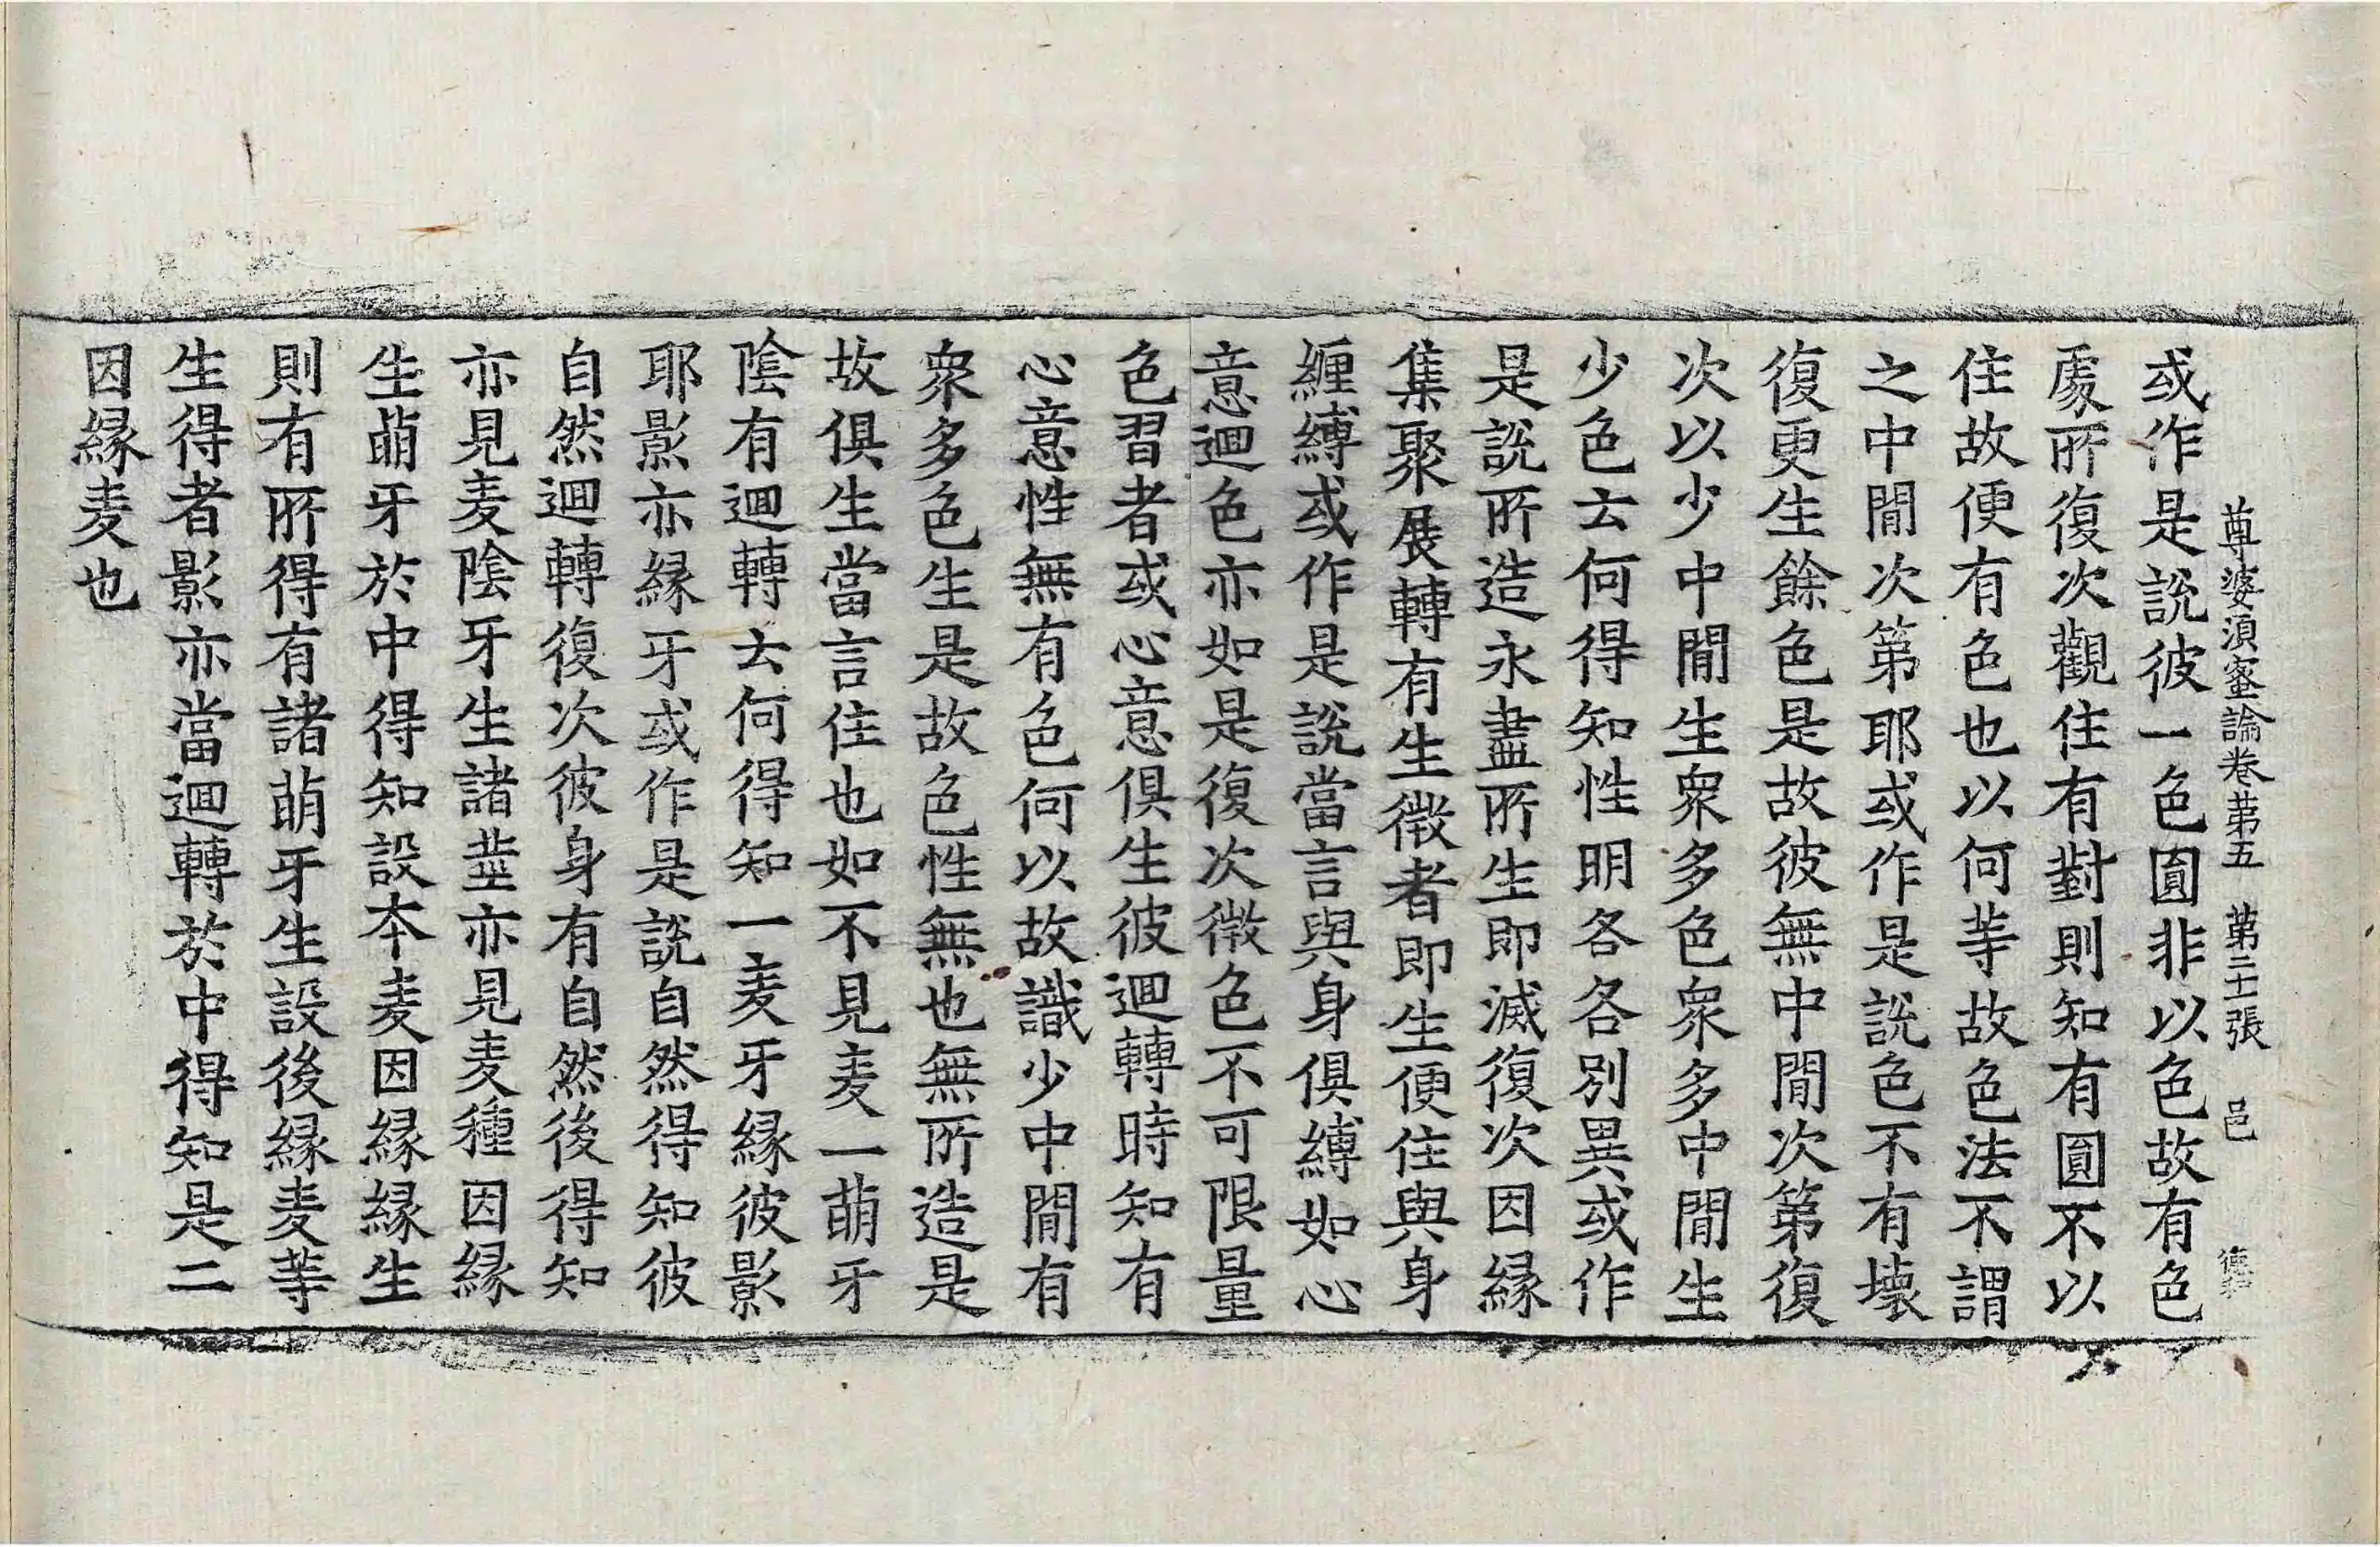 尊婆須蜜論卷第五 第二十張 邑
或作是說彼一色圓非以色故有色
處所復次觀住有對則知有圓不以
住故便有色也以何等故色法不謂
之中間次第耶或作是說色不有壞
復更生餘色是故彼無中間次第復
次以少中間生衆多色衆多中間生
少色云何得知性明各各別異或作
是說所造永盡所生即滅復次因緣
集聚展轉有生徵者即生便住與身
纏縛或作是說當言與身俱縛如心
意迴色亦如是復次徵色不可限量
色習者或心意俱生彼迴轉時知有
心意性無有色何以故識少中間有
衆多色生是故色性無也無所造是
故俱生當言住也如不見麦一萠牙
陰有迴轉云何得知一麦牙緣彼影
耶影亦緣牙或作是說自然得知彼
自然迴轉復次彼身有自然後得知
亦見麦陰牙生諸並亦見麦種因緣
生萠牙於中得知設本麦因緣緣生
則有所得有諸萠牙生設後緣麦等
生得者影亦當迴轉於中得知是二
因緣麦也